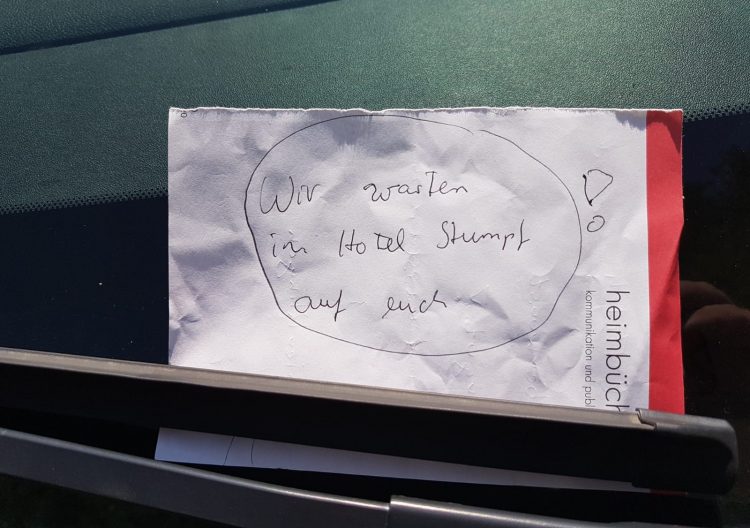 Wir warten
im Hotel Stumpf
auf euch
!
heimbüch
kommunikation und publ